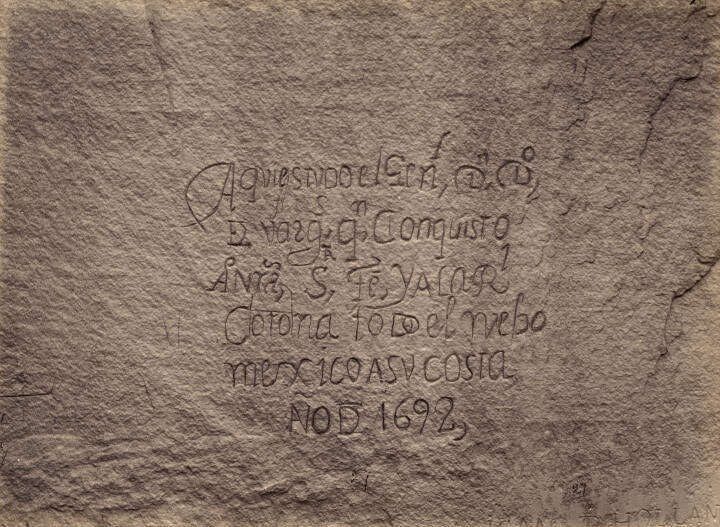 Aqui estuDo el Gen^l, D^n, D^o,
DE Vargs, q^n, Conquisto
ÅNrã, S, Fe, YALAR^l
Corona toDo el nuebo
mexico ASU COSTA
ÑO D 1692,